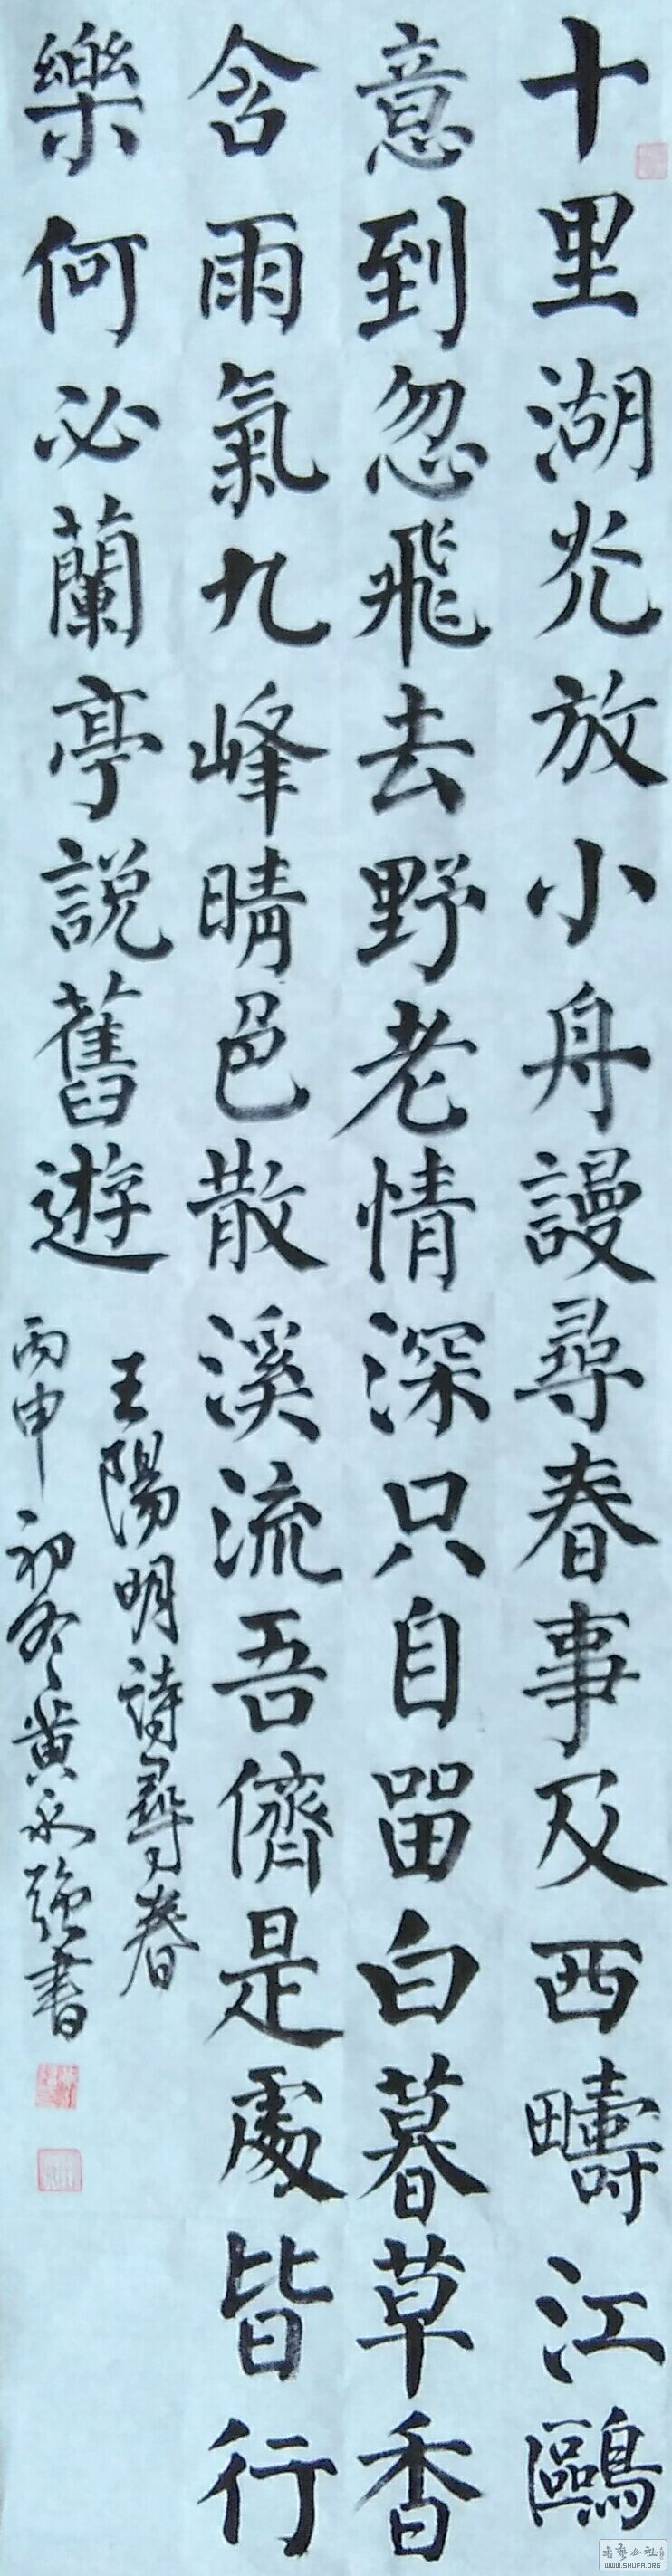 十里湖光放小舟謾尋春事及西疇江鷗
意到忽飛去野老情深只自留白暮草香
含雨氣九峰晴色散溪流吾儕是處皆行
樂何必蘭亭說舊遊
王陽明詩尋春
丙申初冬黄永強書
WWW.SHUFA.ORG